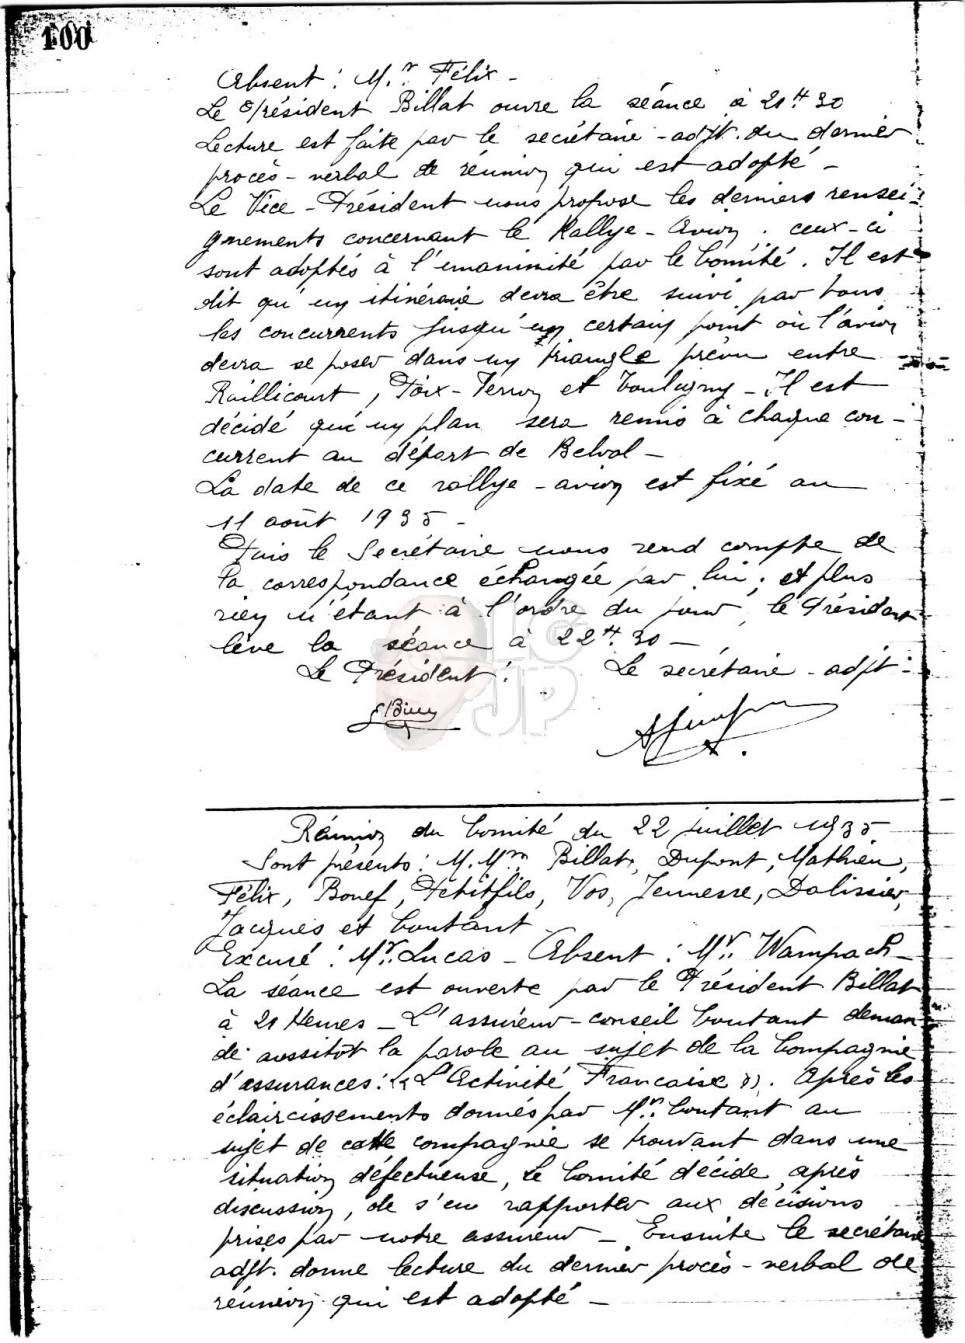 100
Absent : Mr. Félix -
Le Président Billat ouvre la séance à 21H30
Lecture est faite par le secrétaire-adjt. du dernier
procès-verbal de réunion qui est adopté -
Le Vice-Président nous propose les derniers rensei-
gnements concernant le Rallye-Avion . ceux-ci
sont adoptés à l'unanimité par le Comité. Il est
dit qu'un itinéraire devra être suivi par tous
les concurrents jusqu'un certain point où l'avion
devra se poser dans un triangle prévu entre
Raillicourt, Poix-Terron et Touligny - Il est
décidé qu'un plan sera remis à chaque con-
current au départ de Belval -
La date de ce rallye-avion est fixé au
11 août 1935 -
Puis le Secrétaire nous rend compte de
la correspondance échangée par lui ; et plus
rien n'étant à l'ordre du jour, le Président
lève la séance à 22H.30 -
Le Président : Le secrétaire-adjt :
LG
JP
Réunion du Comité du 22 juillet 1935
Sont présents : M.Mrs Billat, Dupont, Mathieu,
Félix, Bonef, Petitfils, Vos, Jeunesse, Dalissier,
Jacques et Coutant
Excusé : Mr. Lucas - Absent : Mr. Wampach -
La séance est ouverte par le Président Billat
à 21 Heures - L'assureur-conseil Coutant deman
de aussitôt la parole au sujet de la Compagnie
d'assurances : "L'Activité Française". Après les
éclaircissements donnés par Mr. Coutant au
sujet de cette compagnie se trouvant dans une
situation défectueuse, le Comité décide, après
discussion, de s'en rapporter aux décisions
prises par notre assureur - Ensuite le secrétaire
adjt. donne lecture du dernier procès-verbal de
réunion qui est adopté -